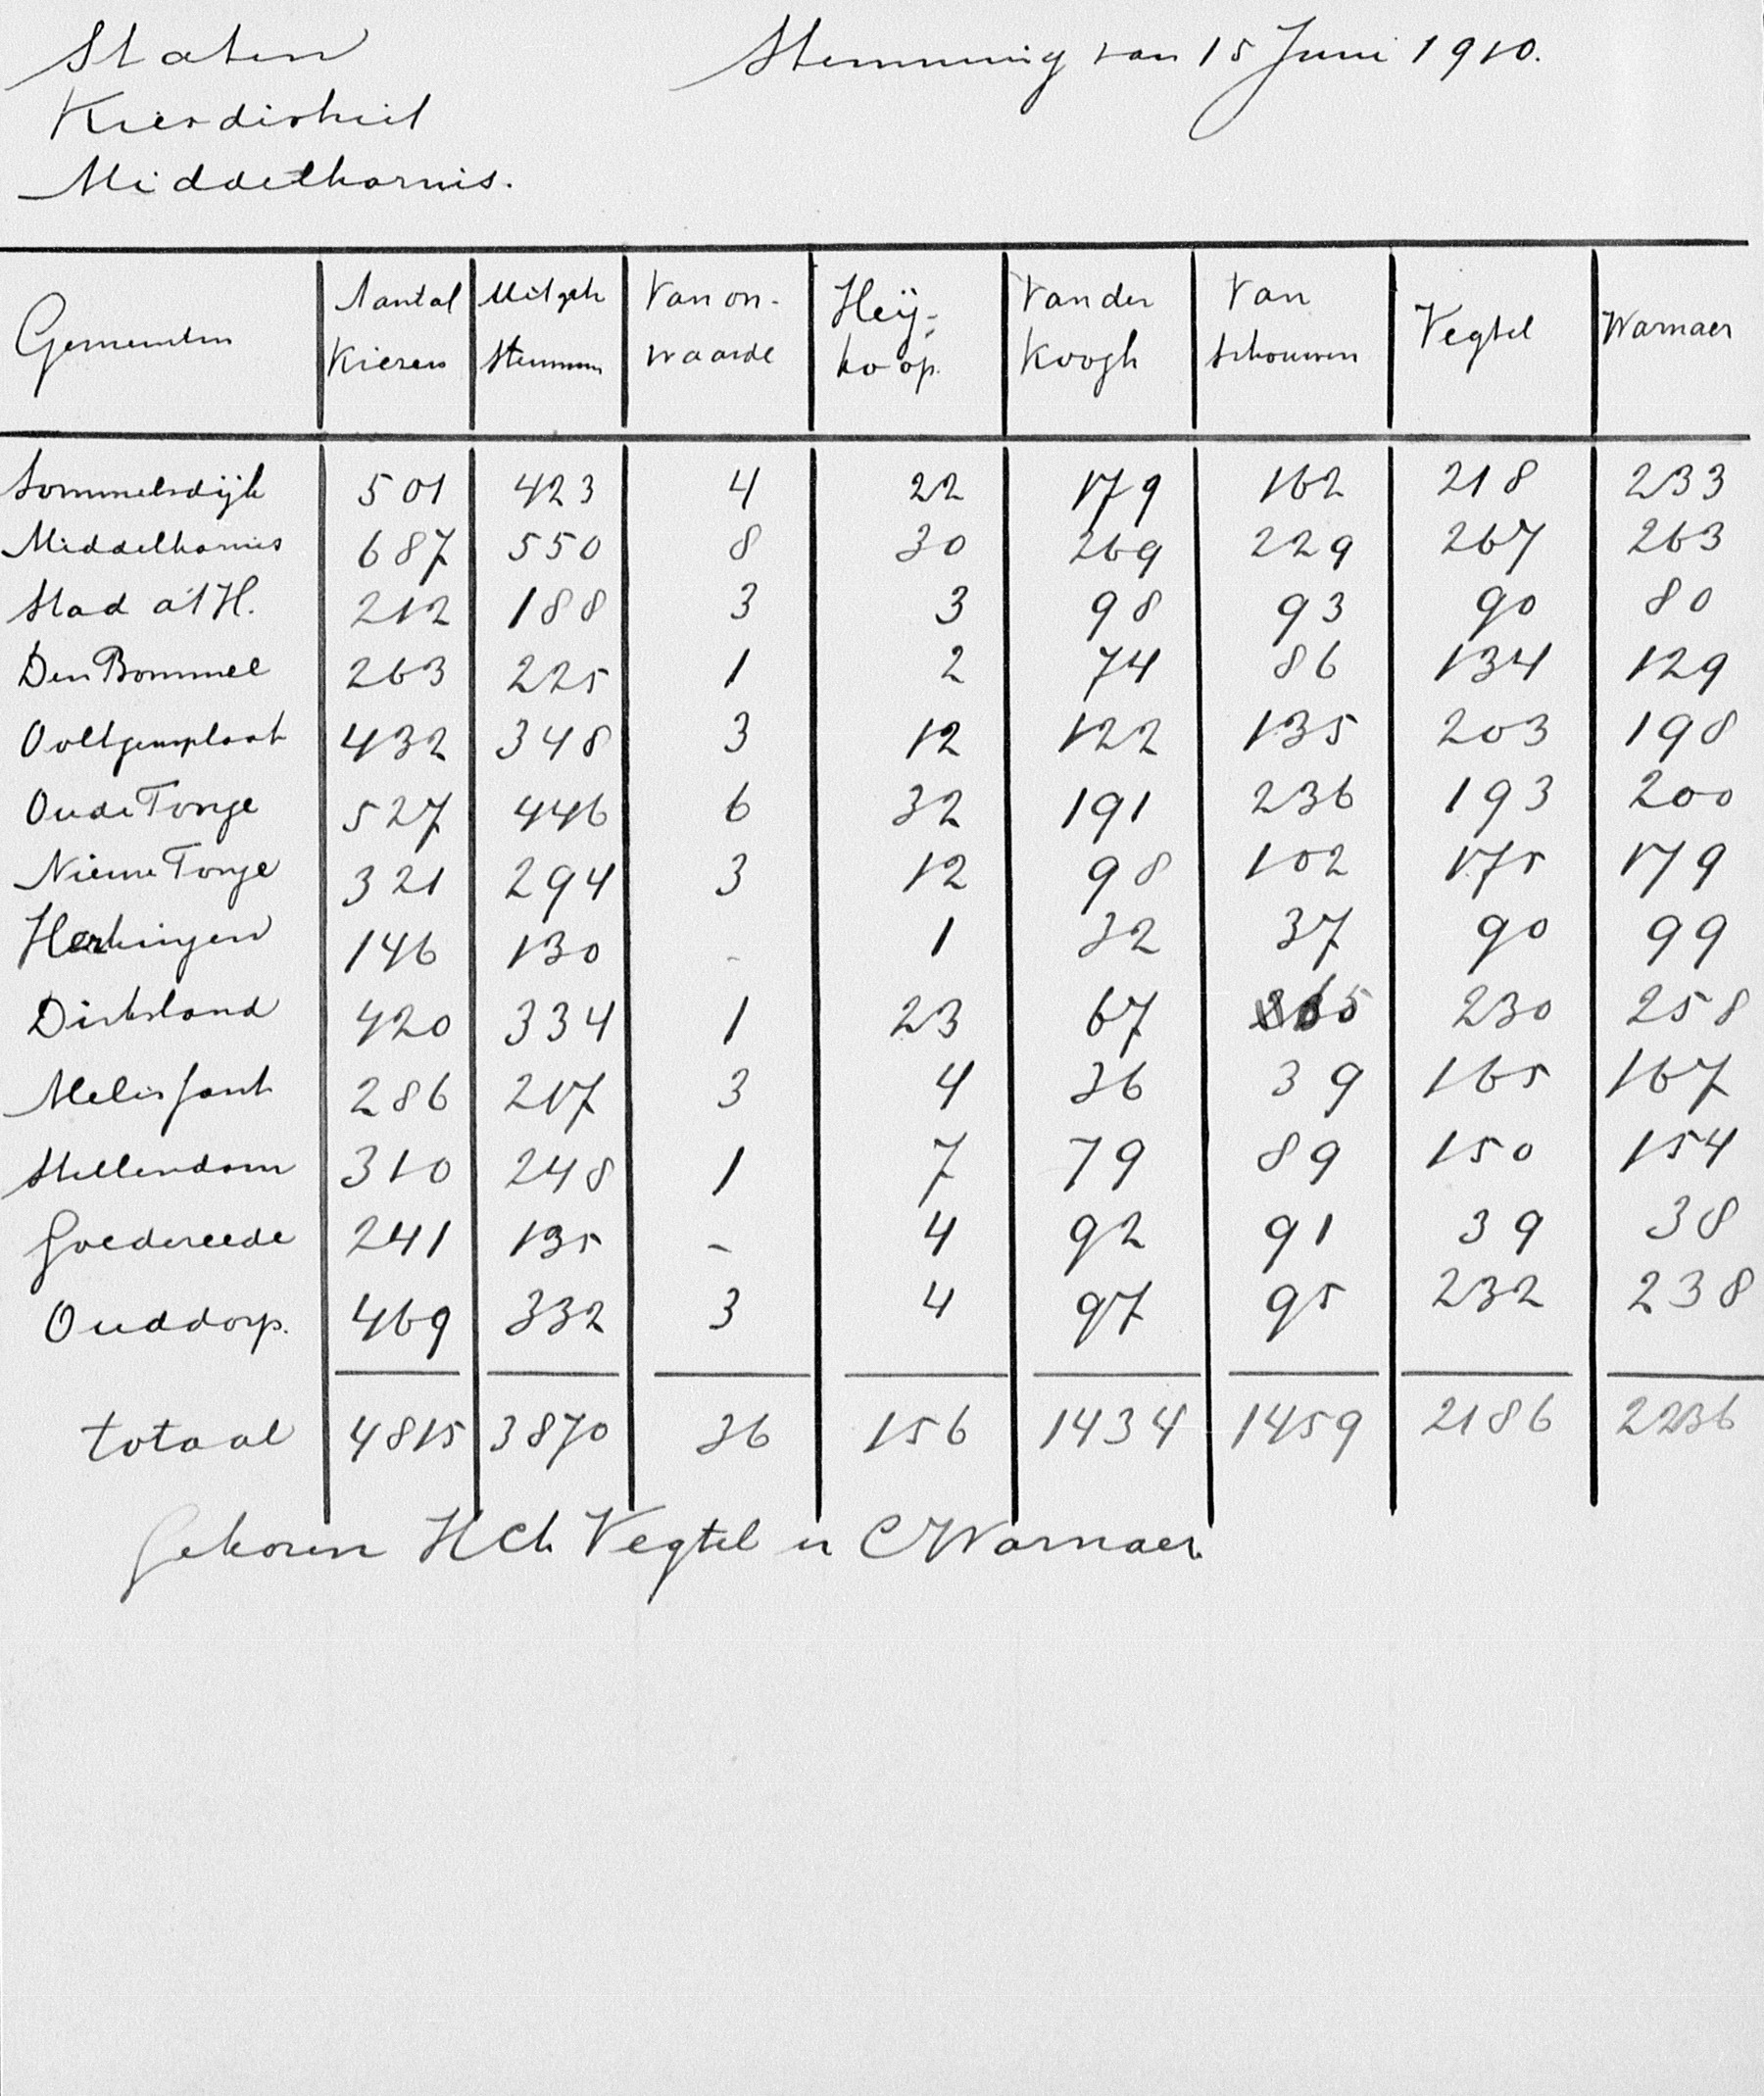 Staten
Stemming van 15 Juni 1910.
Kiesdistrict
Middelharnis.
Gemeenten Aantal Kiezers Uitgebr Stemmen Van onwaarde Heykoop. Van der Koogh Van Schouwen Vegtel Warnaer
Sommelsdijk 501 423 4 22 179 162 218 233
Middelharnis 687 550 8 30 269 229 267 263
Stad a't H. 212 188 3 3 98 93 90 80
Den Bommel 263 225 1 2 74 86 134 129
Ooltgensplaat 432 348 3 12 122 135 203 198
Oude Tonge 527 446 6 32 191 236 193 200
Nieuwe Tonge 321 294 3 12 98 102 175 179
Herkingen 146 130 - 1 32 37 90 99
Dirksland 420 334 1 23 67 65 230 258
Melissant 286 217 3 4 36 39 165 167
Stellendam 310 248 1 7 79 89 150 154
Goedereede 241 135 - 4 92 91 39 38
Ouddorp. 469 332 3 4 97 95 232 238
totaal 4815 3870 36 156 1434 1459 2186 2236
Gekozen H Ch Vegtel en C Warnaer.